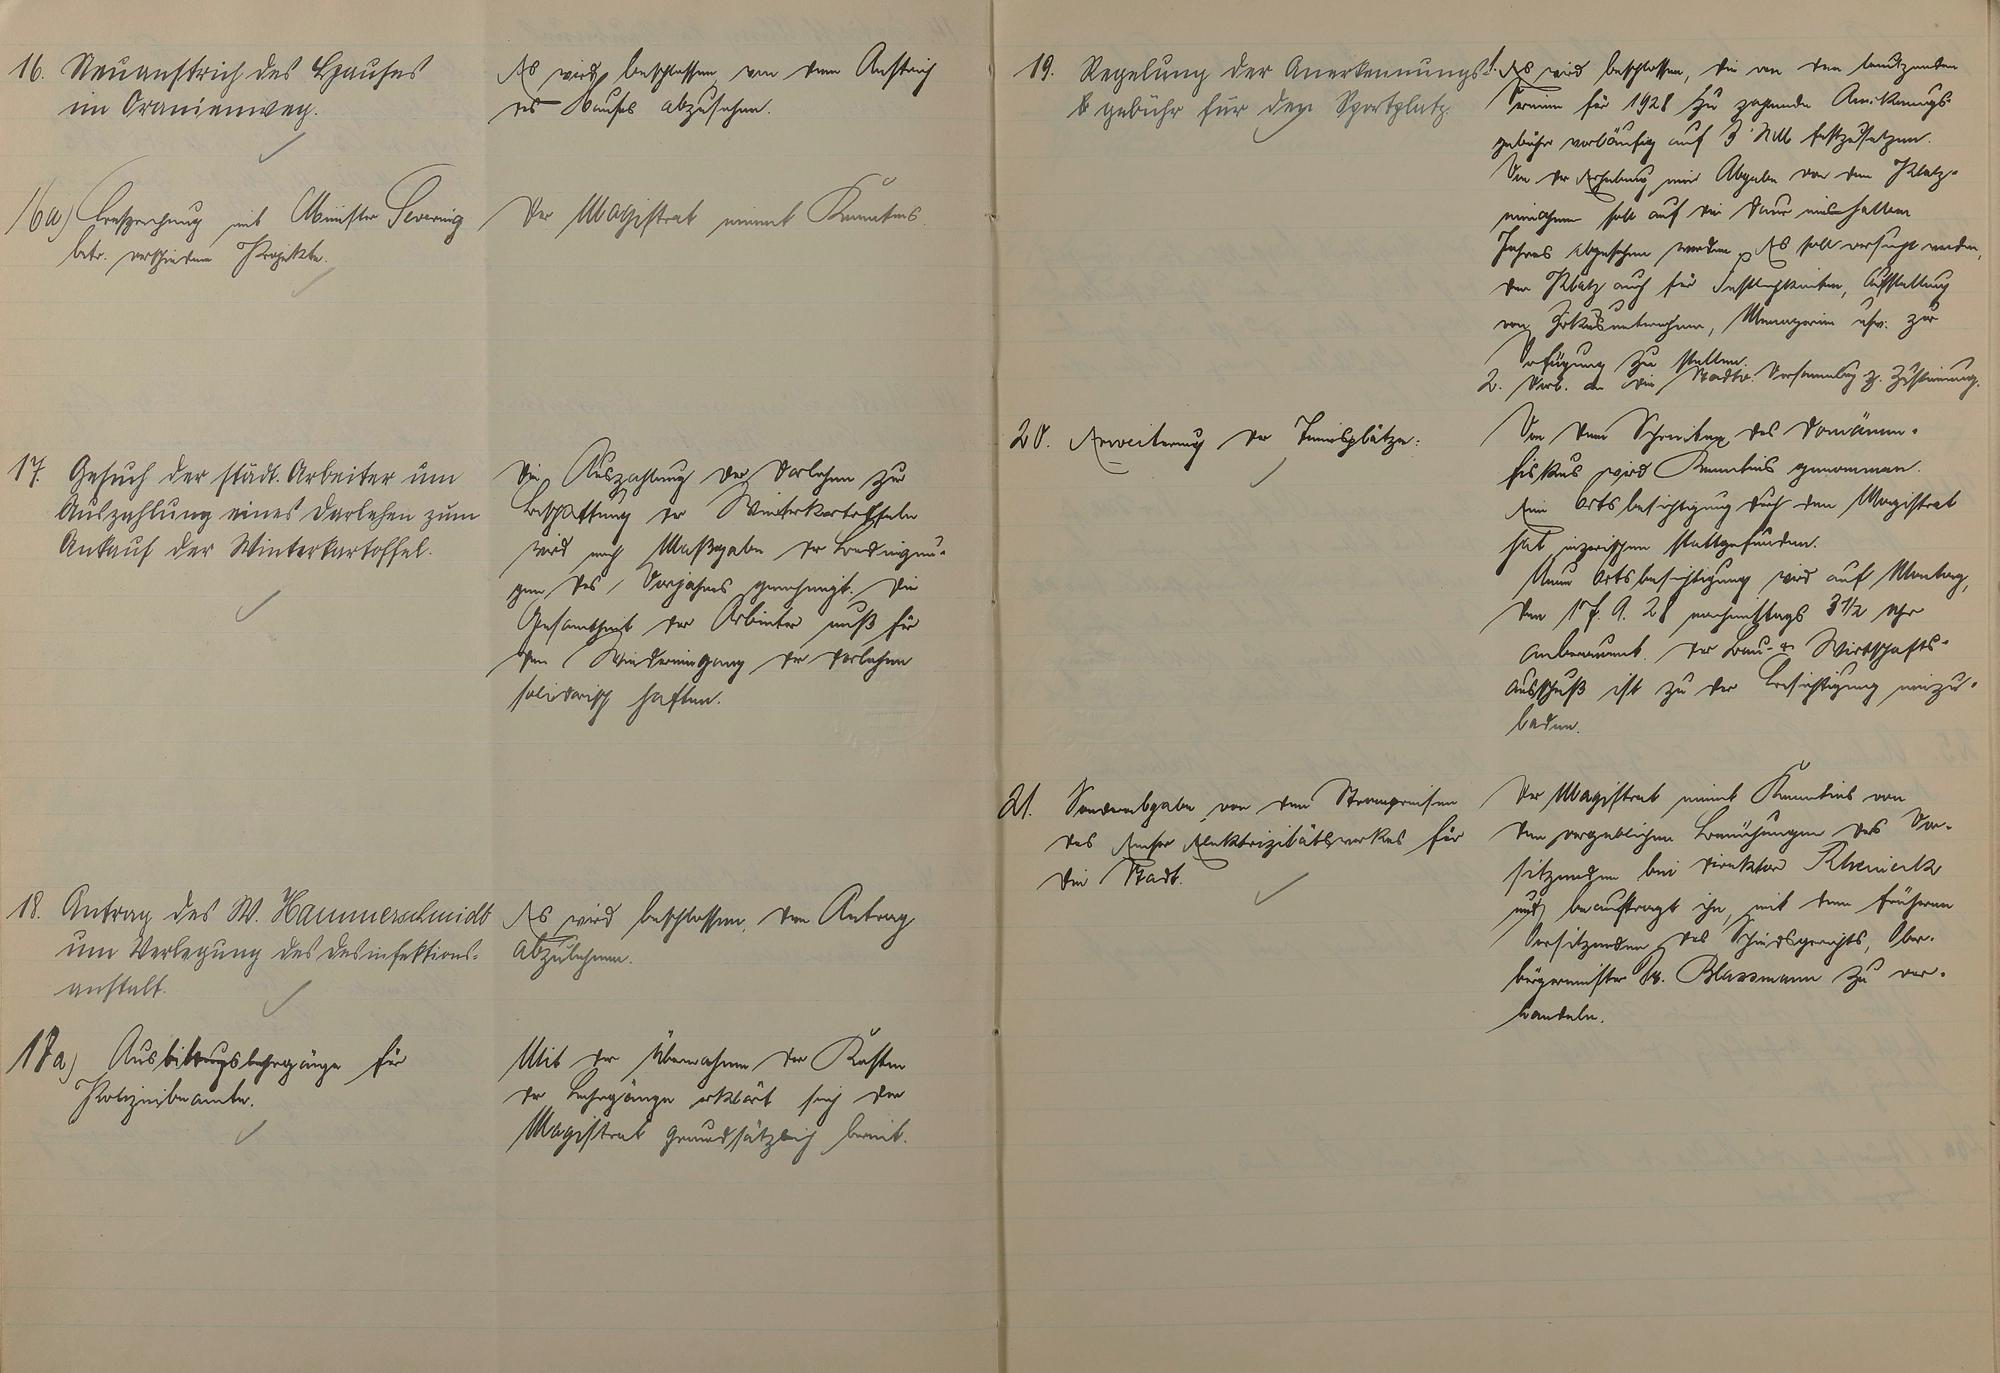 16. Neuanstrich des Hauses
im Oranienweg.
Es wird beschlossen, von dem Anstrich
des Hauses abzusehen.
16a) Besprechung mit Minister Severing
betr. verschiedene Projekte.
Der Magistrat nimmt Kenntnis.
17. Gesuch der städt. Arbeiter um
Auszahlung eines Darlehen zum
Ankauf der Winterkartoffel.
Die Auszahlung der Darlehen zur
Beschaffung der Winterkartoffeln
wird nach Maßgabe der Bedingun-
gen des Vorjahres genehmigt. Die
Gesamtheit der Arbeiter muß für
den Wiedereingang der Darlehen
solidarisch haften.
18. Antrag des W. Hammerschmidt
um Verlegung des Desinfektions-
anstalt.
Es wird beschlossen, den Antrag
abzulehnen.
18a) Ausbildungslehrgänge für
Polizeibeamte.
Mit der Übernahme der Kosten
der Lehrgänge erklärt sich der
Magistrat grundsätzlich bereit.
19. Regelung der Anerkennungs
gebühr für den Sportplatz.
1. Es wird beschlossen, die von den
Vereinen für 1928 zu zahlende Anerkennungs-
gebühr vorläufig auf 3 RM festzusetzen.
Von der Erhebung einer Abgabe von den Platz-
einnahmen soll auf die Dauer eines halben
Jahres abgesehen werden. Es soll versucht werden,
den Platz auch für Festlichkeiten, Aufstellung
von Zirkusunternehmen, Menagerien usw. zur
Verfügung zu stellen.
2. Vorl. an die Stadtv. Versammlung z. Zustimmung.
20. Erweiterung der Tennisplätze.
Von dem Schreiben des Domänen-
fiskus wird Kenntnis genommen.
Eine Ortsbesichtigung durch den Magistrat
hat inzwischen stattgefunden.
Neue Ortsbesichtigung wird auf Montag,
den 17. 9. 28 nachmittags 3 1/2 Uhr
anberaumt. Der Bau- u. Wirtschafts-
ausschuß ist zu der Besichtigung einzu-
laden.
21. Sonderabgabe von den Strompreisen
des Emser Elektrizitätswerkes für
die Stadt.
Der Magistrat nimmt Kenntnis von
den vergeblichen Bemühungen des Vor-
sitzenden bei Direktor Rheineck
und beauftragt ihn, mit dem früheren
Vorsitzenden des Schiedsgerichts, Ober-
bürgermeister Dr. Glassmann zu ver-
handeln.